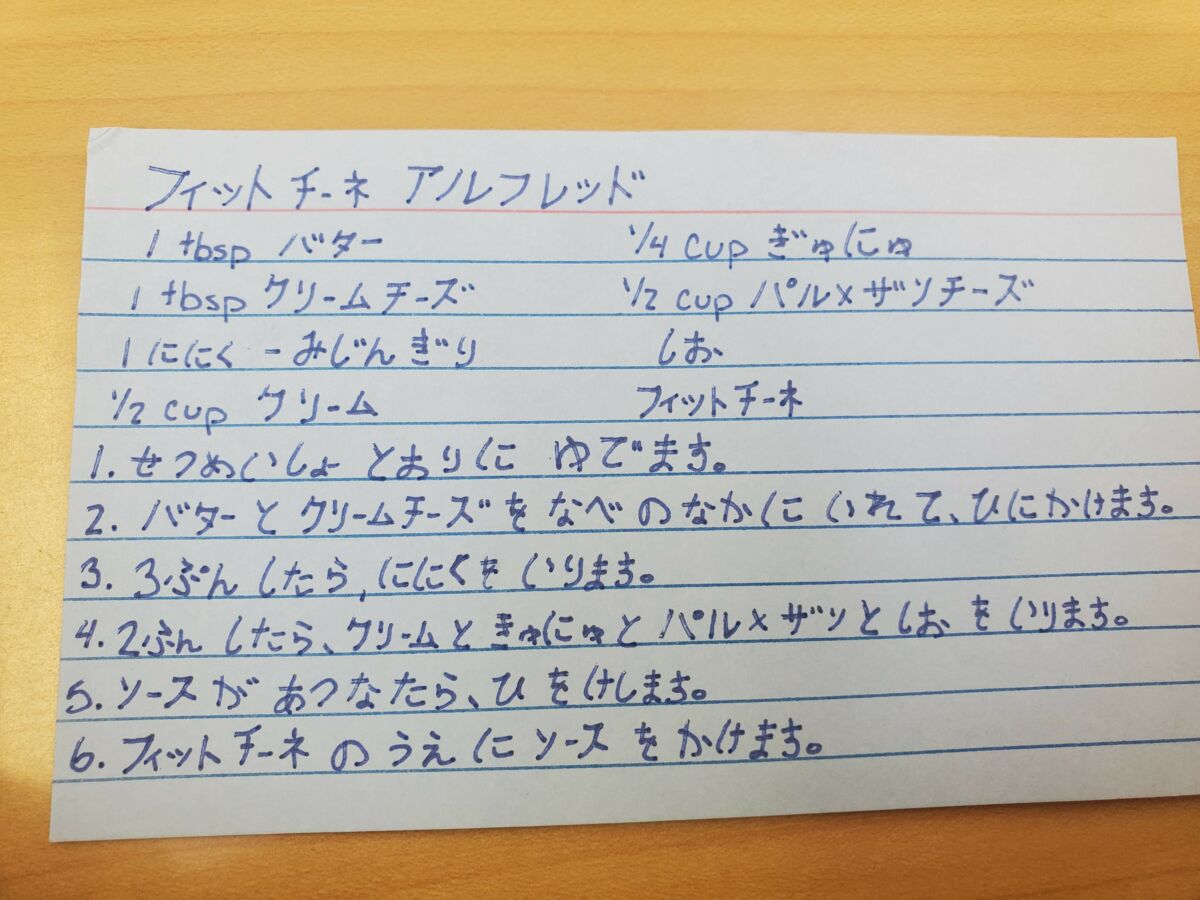 フィットチーネ アルフレッド
1 tbsp バター 1/4 cup ぎゅにゅ
1 tbsp クリームチーズ 1/2 cup パルメザンチーズ
1 ににく - みじんぎり しお
1/2 cup クリーム フィットチーネ
1. せつめいしょ とおりに ゆでます。
2. バターと クリームチーズを なべのなかに いれて、ひにかけます。
3. 3ぷん したら, ににくを いります。
4. 2ふん したら、クリームと きゅにゅと パルメザンと しお を いります。
5. ソースが あつなたら、ひ をけします。
6. フィットチーネ のうえに ソース をかけます。